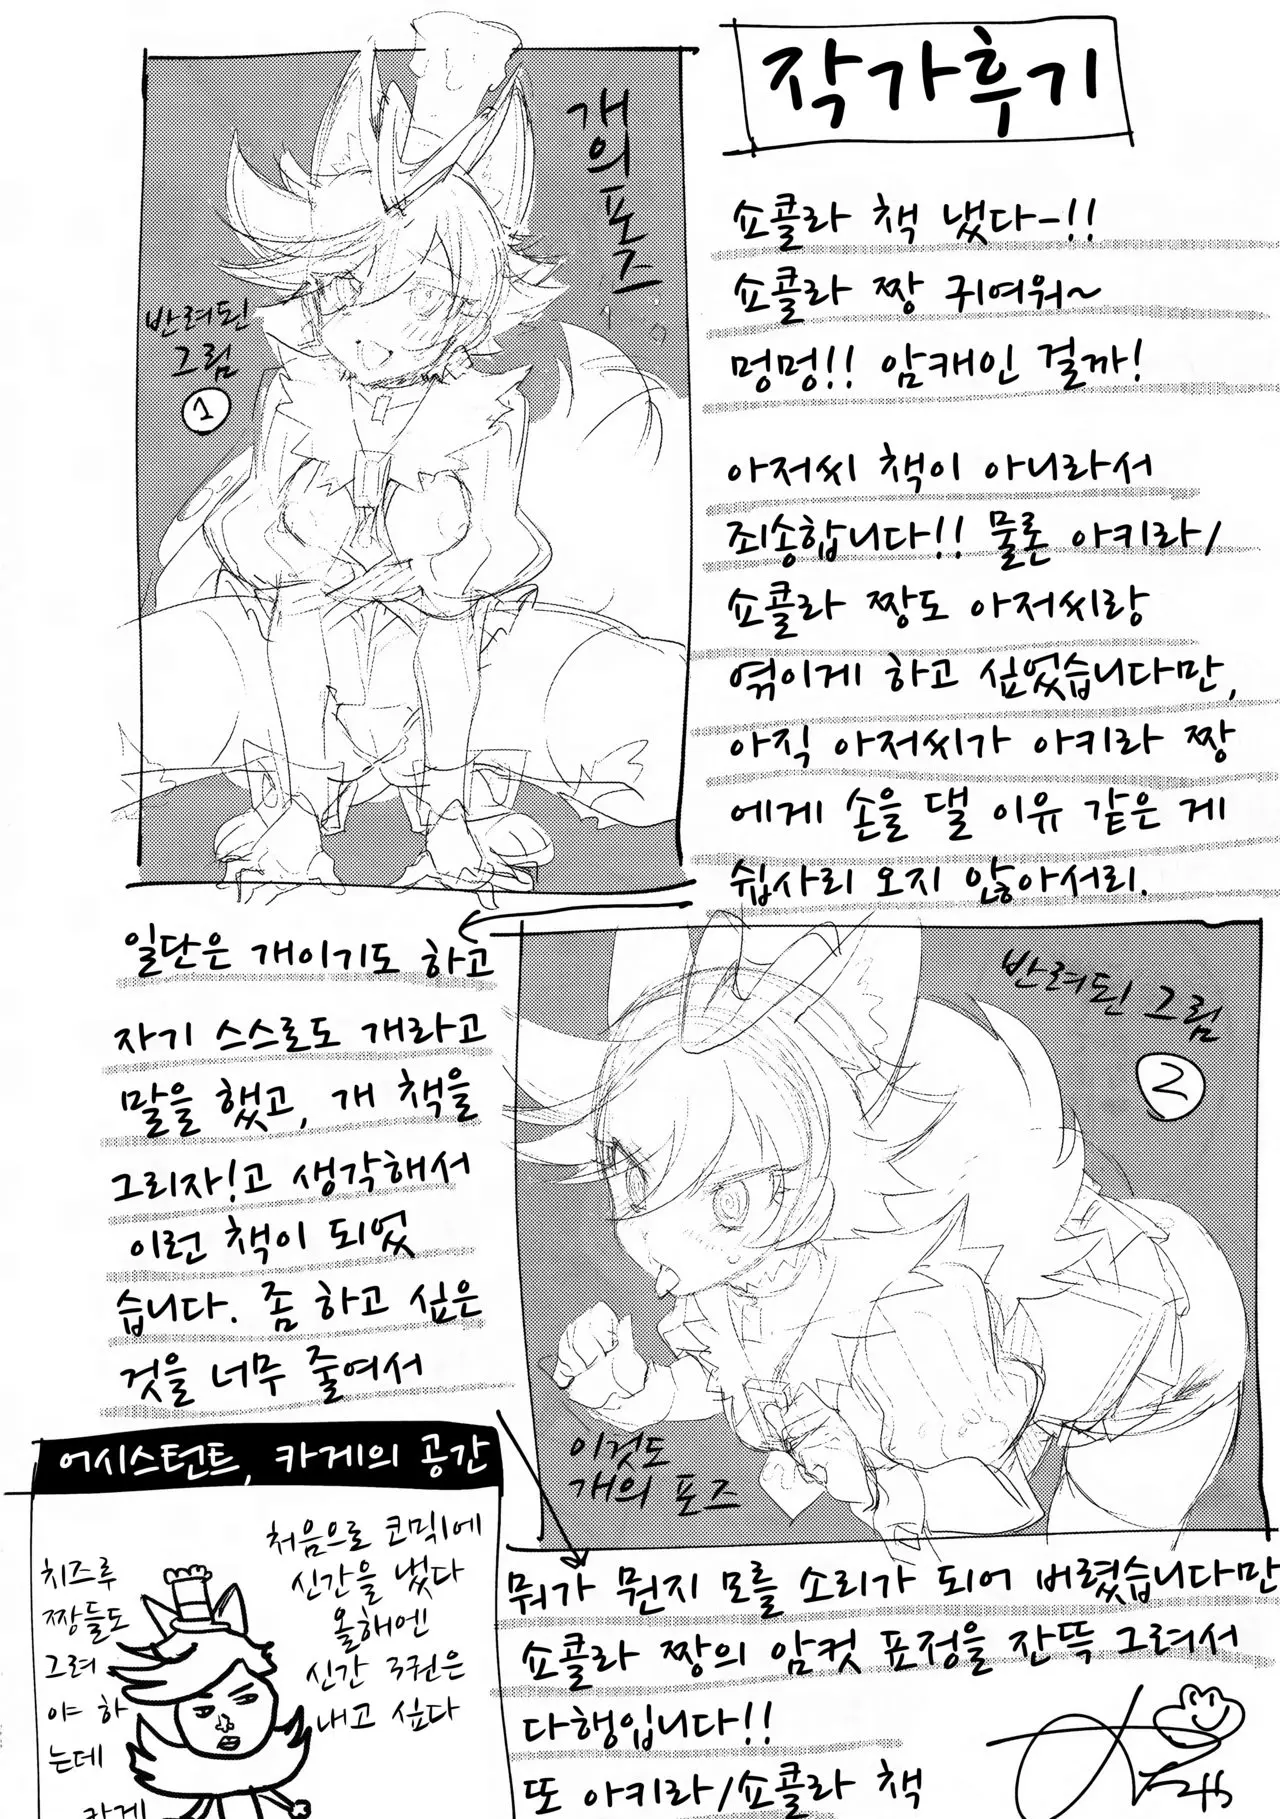 작가후기
개의 포즈
반려된
그림
1
쇼콜라 책 냈다-!!
쇼콜라 짱 귀여워~
멍멍!! 암캐인 걸까!
아저씨 책이 아니라서
죄송합니다!! 물론 아키라/
쇼콜라 짱도 아저씨랑
엮이게 하고 싶었습니다만,
아직 아저씨가 아키라 짱
에게 손을 댈 이유 같은 게
쉽사리 오지 않아서리.
일단은 개이기도 하고
자기 스스로도 개라고
말을 했고, 개 책을
그리자!고 생각해서
이런 책이 되었
습니다. 좀 하고 싶은
것을 너무 줄여서
반려된 그림
2
이것도
개의 포즈
뭐가 뭔지 모를 소리가 되어 버렸습니다만
쇼콜라 짱의 암컷 표정을 잔뜩 그려서
다행입니다!!
또 아키라/쇼콜라 책
어시스턴트, 카게의 공간
처음으로 코믹1에
신간을 냈다
올해엔
신간 3권은
내고 싶다
치즈루
짱들도
그려
야 하
는데
카게